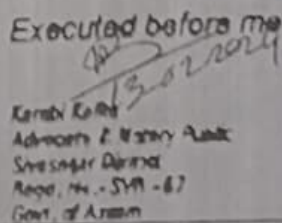 Executed before me
13.02.2024
Advocate & Notary Public
Sivasagar District
Regd. No. - SVR - 67
Govt. of Assam